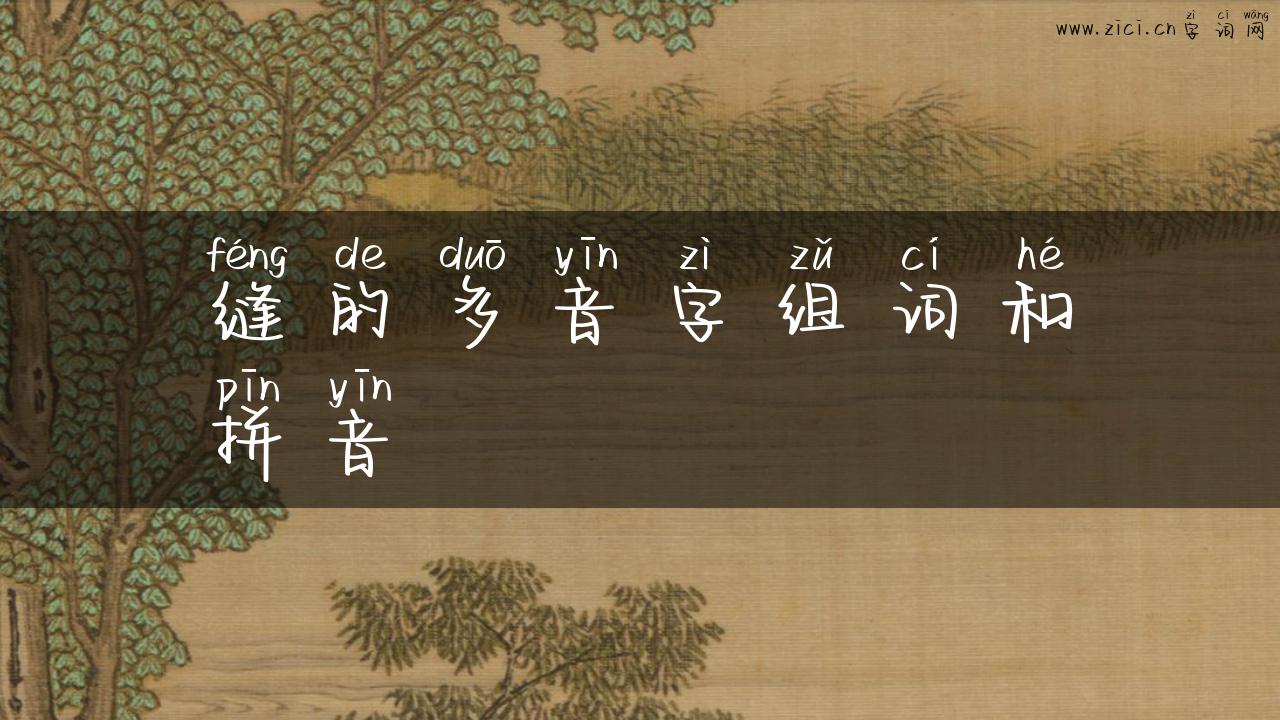 zì cí wǎng
www.zici.cn字词网
féng de duō yīn zì zǔ cí hé
缝的多音字组词和
pīn yīn
拼音